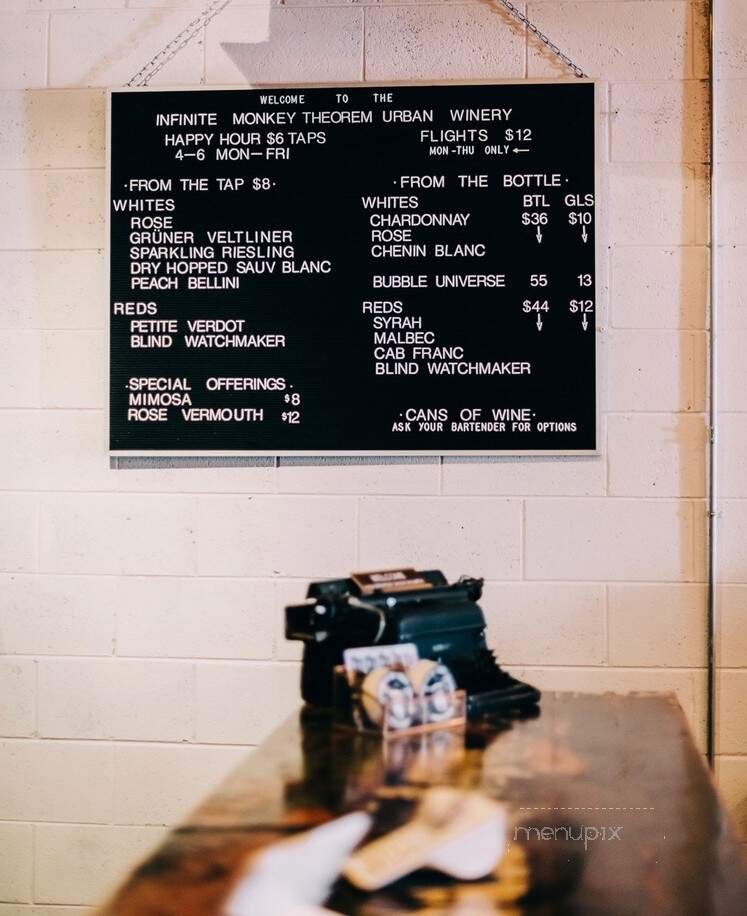 WELCOME TO THE
INFINITE MONKEY THEOREM URBAN WINERY
HAPPY HOUR $6 TAPS
4-6 MON-FRI
FLIGHTS $12
MON-THU ONLY ←
·FROM THE TAP $8·
WHITES
ROSE
GRÜNER VELTLINER
SPARKLING RIESLING
DRY HOPPED SAUV BLANC
PEACH BELLINI
REDS
PETITE VERDOT
BLIND WATCHMAKER
·SPECIAL OFFERINGS·
MIMOSA $8
ROSE VERMOUTH $12
·FROM THE BOTTLE·
WHITES BTL GLS
CHARDONNAY $36 $10
ROSE ↓ ↓
CHENIN BLANC
BUBBLE UNIVERSE 55 13
REDS $44 $12
SYRAH ↓ ↓
MALBEC
CAB FRANC
BLIND WATCHMAKER
·CANS OF WINE·
ASK YOUR BARTENDER FOR OPTIONS
WELCOME
menupix